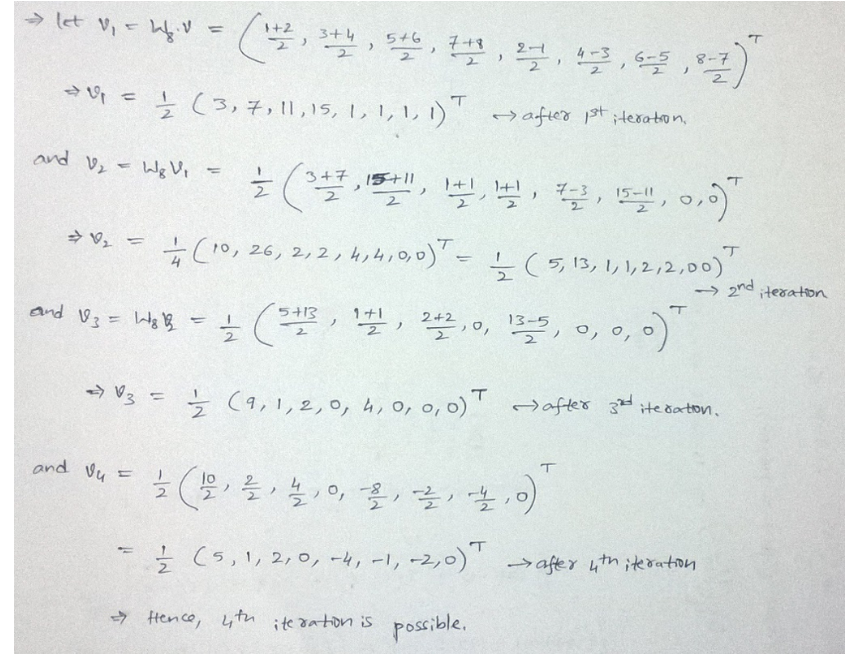 ⇒ let v₁ = W₈.v = ( (1+2)/2 , (3+4)/2 , (5+6)/2 , (7+8)/2 , (2-1)/2 , (4-3)/2 , (6-5)/2 , (8-7)/2 )ᵀ
⇒ v₁ = 1/2 (3, 7, 11, 15, 1, 1, 1, 1)ᵀ ↔ after 1st iteration.
and v₂ = W₈v₁ = 1/2 ( (3+7)/2 , (15+11)/2 , (1+1)/2 , (1+1)/2 , (7-3)/2 , (15-11)/2 , 0, 0 )ᵀ
⇒ v₂ = 1/4 (10, 26, 2, 2, 4, 4, 0, 0)ᵀ = 1/2 (5, 13, 1, 1, 2, 2, 0 0)ᵀ
→ 2nd iteration
and v₃ = W₈v₂ = 1/2 ( (5+13)/2 , (1+1)/2 , (2+2)/2 , 0, (13-5)/2 , 0, 0, 0 )ᵀ
⇒ v₃ = 1/2 (9, 1, 2, 0, 4, 0, 0, 0)ᵀ ↔ after 3rd iteraton.
and v₄ = 1/2 ( 10/2 , 2/2 , 4/2 , 0, -8/2 , -2/2 , -4/2 , 0 )ᵀ
= 1/2 (5, 1, 2, 0, -4, -1, -2, 0)ᵀ → after 4th iteration
⇒ Hence, 4th iteration is possible.